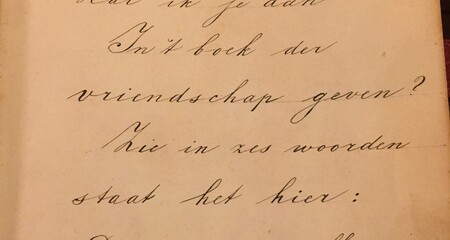 ik je aan
In 't boek der
vriendschap geven?
Zie in zes woorden
staat het hier: